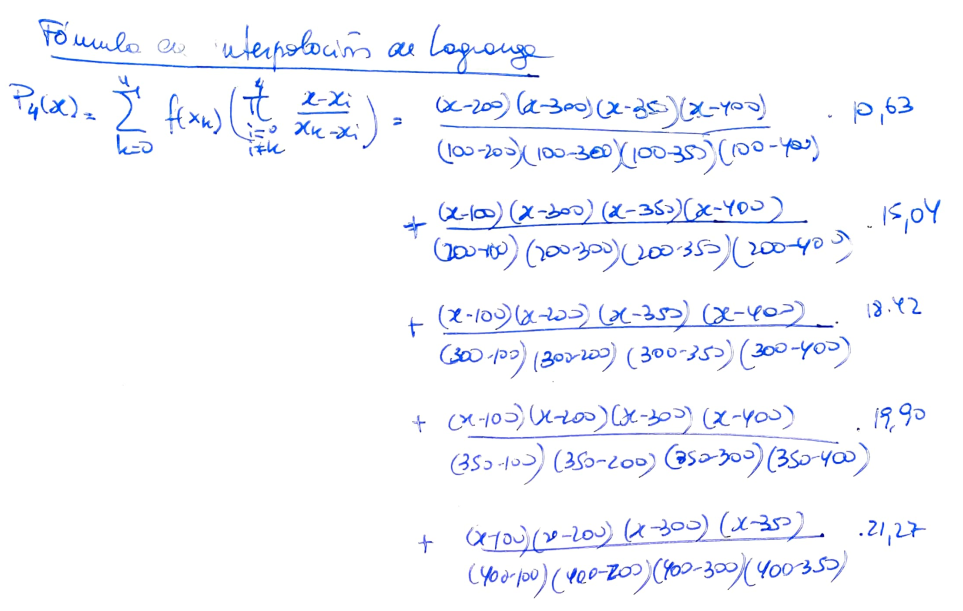 Fórmula de interpolación de Lagrange
P₄(x) = ∑_{k=0}^{4} f(x_k) ( ∏_{i=0, i≠k}^{4} (x-x_i)/(x_k-x_i) ) = (x-200)(x-300)(x-350)(x-400) / (100-200)(100-300)(100-350)(100-400) · 10,63
+ (x-100)(x-300)(x-350)(x-400) / (200-100)(200-300)(200-350)(200-400) · 15,04
+ (x-100)(x-200)(x-350)(x-400) / (300-100)(300-200)(300-350)(300-400) · 18.42
+ (x-100)(x-200)(x-300)(x-400) / (350-100)(350-200)(350-300)(350-400) · 19,90
+ (x-100)(x-200)(x-300)(x-350) / (400-100)(400-200)(400-300)(400-350) · 21,27